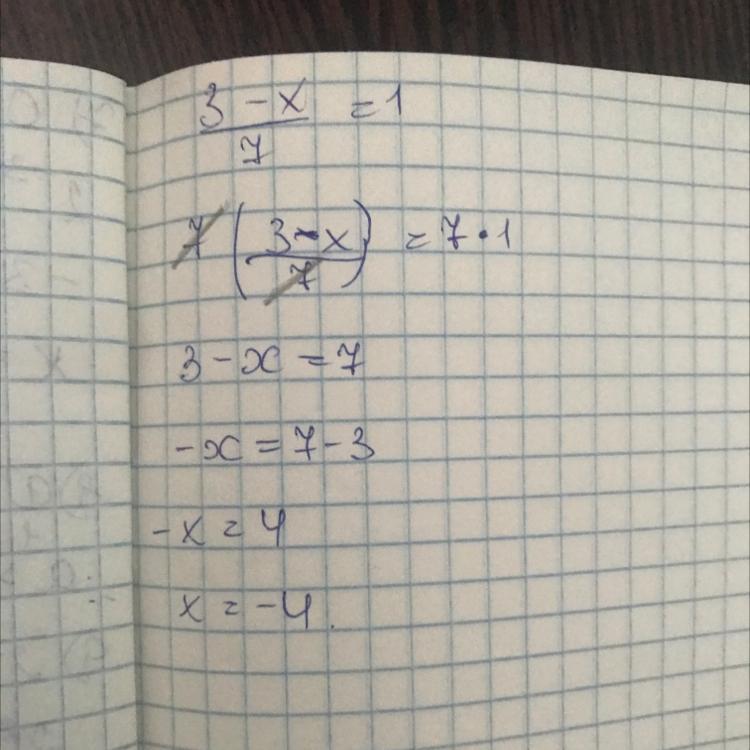 3 - x = 1
7
7 (3 - x) = 7 · 1
7
3 - x = 7
-x = 7 - 3
-x = 4
x = -4.